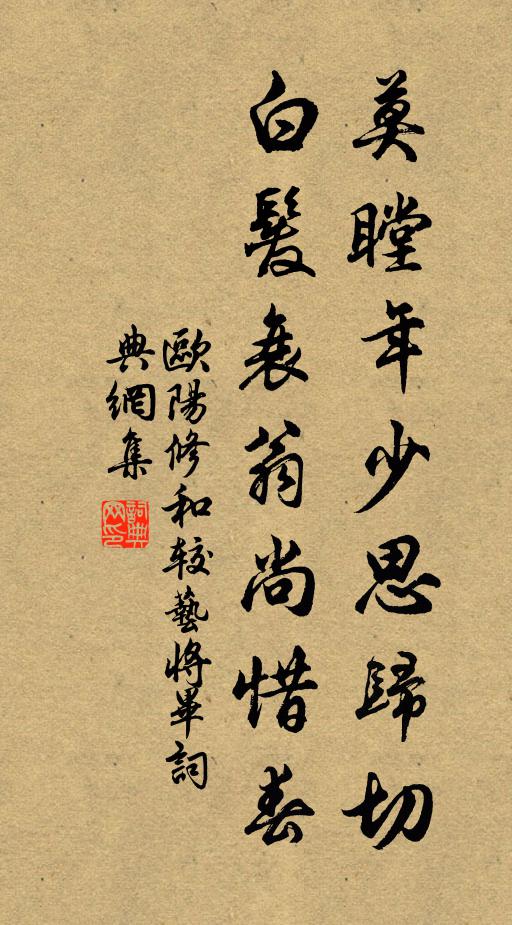 莫瞠年少思歸切
白髮衰翁尚惜春
歐陽修和較藝將畢詞
典網集
詞典
网印